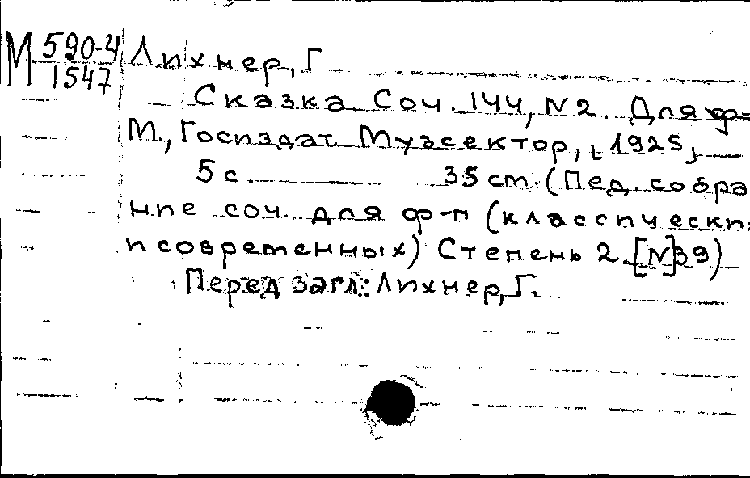 М 590-4
1547
Лихнер, Г
Сказка Соч. 144, N2. Для ф-
М., Госиздат Музсектор, [1925]
5 с 35 cm (Пед. собра
ние соч. для ф-п (классически
и современных) Степень 2. [N]39)
Перед загл: Лихнер, Г.